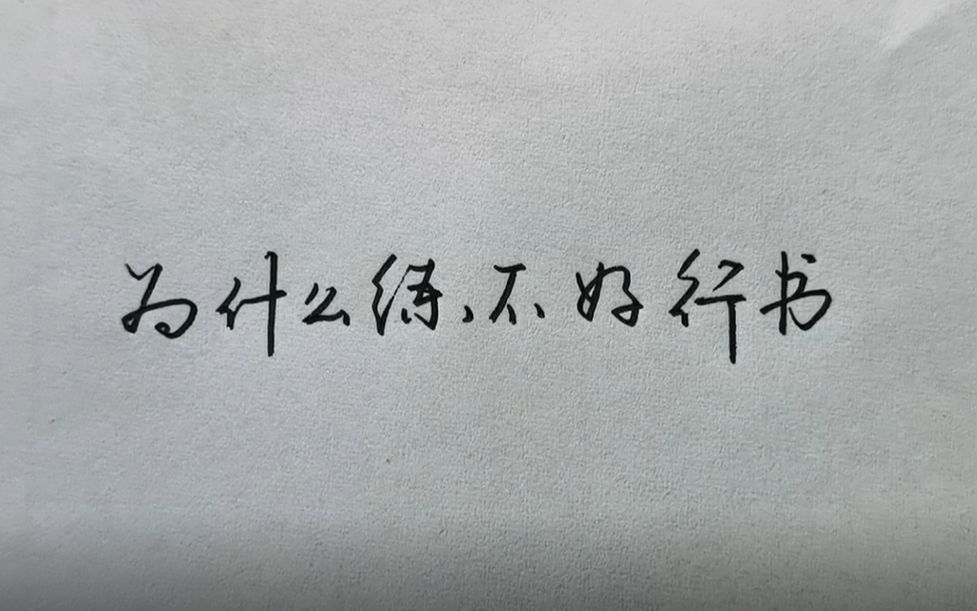 为什么练不好行书